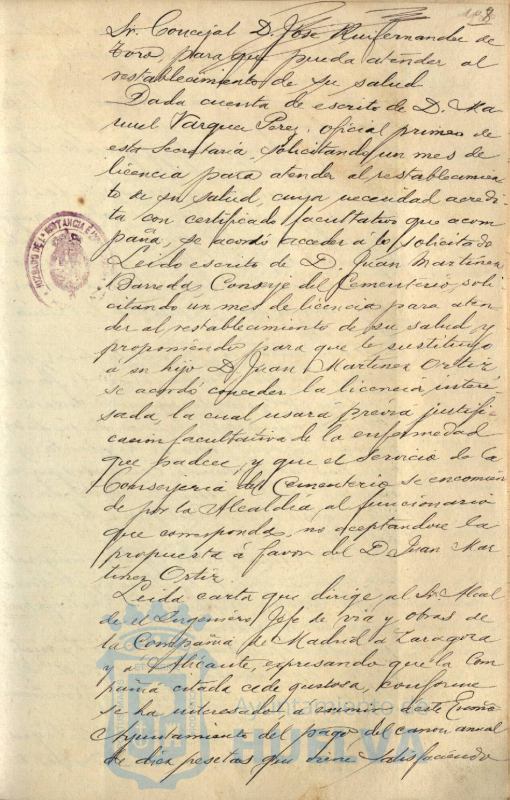 8
Sr. Concejal D. José Ruifernandez de
Toro, para que pueda atender al
restablecimiento de su salud
Dada cuenta de escrito de D. Ma
nuel Vazquez Perez, oficial primero de
esta Secretaria, solicitando un mes de
licencia para atender al restablecimien
to de su salud, cuya necesidad acredi
ta con certificado facultativo que acom
paña, se acordó acceder á lo solicitado
Leido escrito de D. Juan Martinez
Barreda, Conserje del Cementerio, soli
citando un mes de licencia para aten
der al restablecimiento de su salud, y
proponiendo para que le sustituya
á su hijo D. Juan Martinez Ortiz,
se acordó conceder la licencia intere
sada, la cual usará previa justifi
cacion facultativa de la enfermedad
que padece, y que el servicio de la
Conserjeria del Cementerio se encomien
de por la Alcaldia, al funcionario
que corresponda, no aceptandose la
propuesta á favor del D. Juan Mar
tinez Ortiz.
Leida carta que dirige al Sr. Alcal
de el Ingeniero Jefe de via y obras de
la Compañia de Madrid á Zaragoza
y á Alicante, expresando que la Com
pañia citada cede gustosa, conforme
se ha interesado á eximir á este Excmo
Ayuntamiento del pago del canon anual
de diez pesetas que viene satisfaciendo
JUZGADO DE 1ª INSTANCIA E
Ayuntamiento de
HUELVA